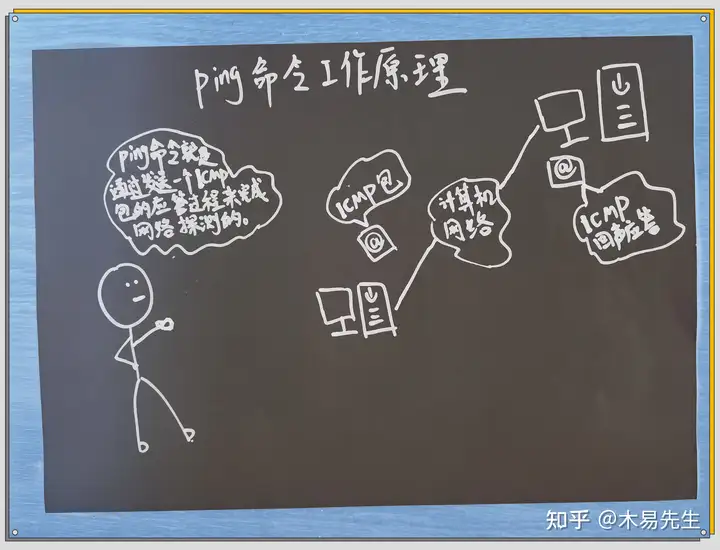 ping命令工作原理
ping命令就是
通过发送一个ICMP
包的应答过程来完成
网络探测的。
ICMP包
@
计算机
网络
@
ICMP
回声应答
知乎 @木易先生